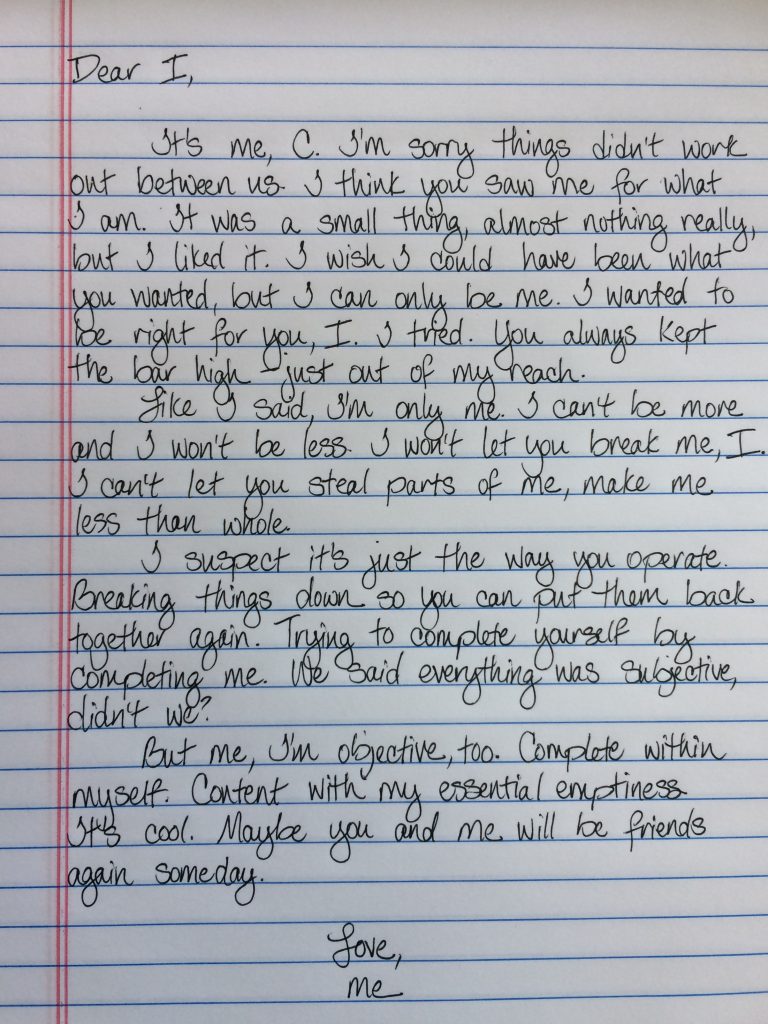 Dear I,
It's me, C. I'm sorry things didn't work
out between us. I think you saw me for what
I am. It was a small thing, almost nothing really,
but I liked it. I wish I could have been what
you wanted, but I can only be me. I wanted to
be right for you, I. I tried. You always kept
the bar high - just out of my reach.
Like I said, I'm only me. I can't be more
and I won't be less. I won't let you break me, I.
I can't let you steal parts of me, make me
less than whole.
I suspect it's just the way you operate.
Breaking things down so you can put them back
together again. Trying to complete yourself by
completing me. We said everything was subjective,
didn't we?
But me, I'm objective, too. Complete within
myself. Content with my essential emptiness.
It's cool. Maybe you and me will be friends
again someday.
Love,
me